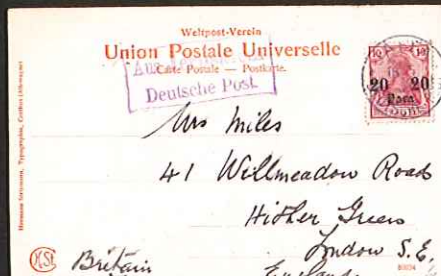 Weltpost-Verein
Union Postale Universelle
Carte Postale — Postkarte.
Aus
Deutsche Post
10 10
20 20
Para
Mrs Miles
41 Wellmeadow Road
Hither Green
London S.E.
Britain England